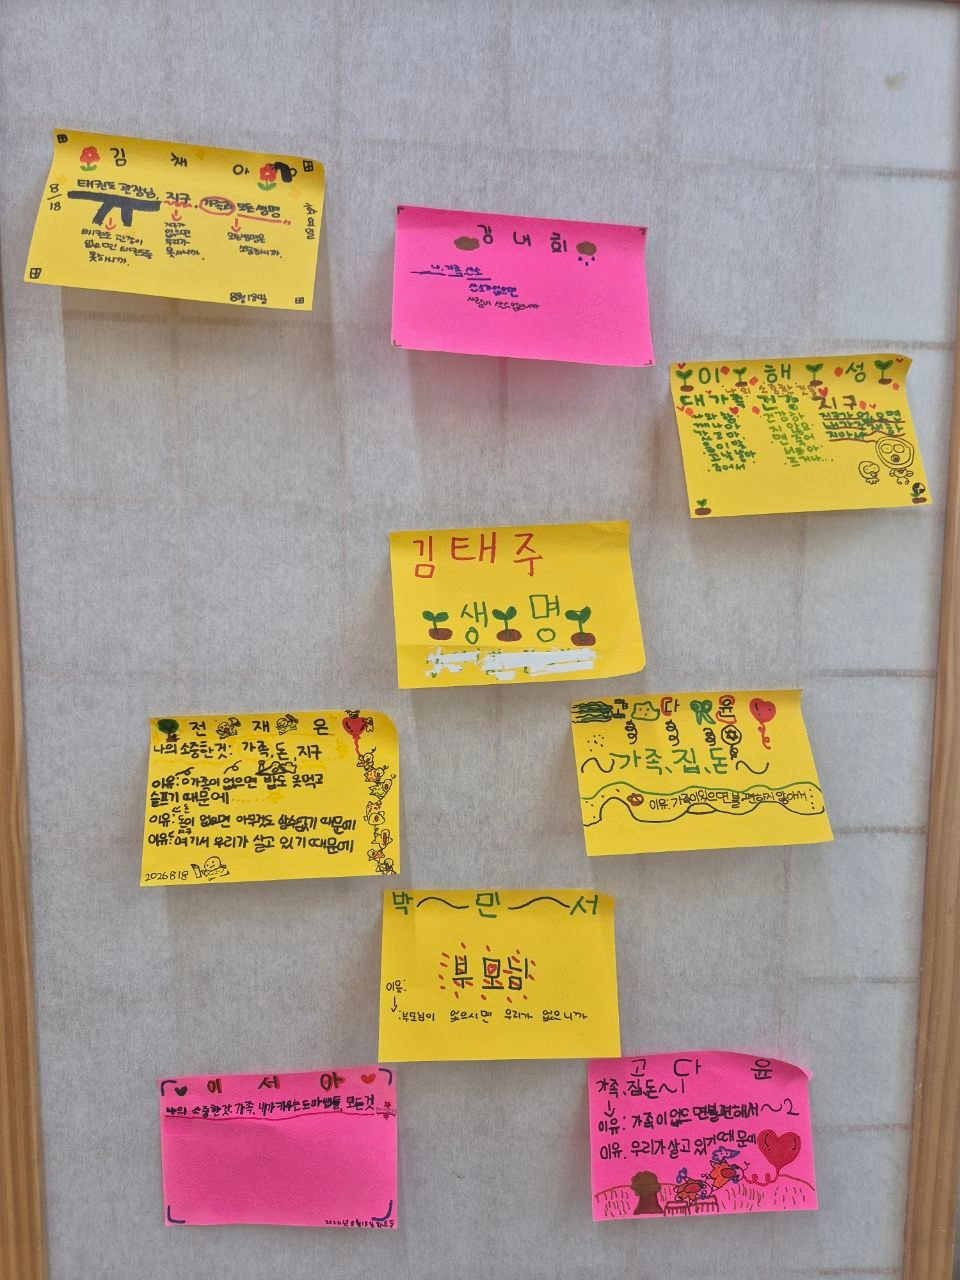 김 채 아
8/18
화요일
태권도 관장님, 지구, 가족과 모든 생명
태권도 관장이
없으면 태권도를
못하니까.
지구가
없으면
우리가
못사니까.
모든생명은
소중하니까.
8월18일
강 너 희
나, 가족 산소
산소가없으면
사람이
이 해 성
나의 소중한 것들
대가족 건강 지구
나와 함
께 나아
건강하
지 않으
면
지구가 없으면
내가 존재하
지 아나
김태주
생명
전 재 은
나의 소중한것: 가족, 돈, 지구
이유: 가족이 없으면 밥도 못먹고
슬프기 때문에
이유: 돈이 없으면 아무것도 살수없기 때문에
이유: 여기서 우리가 살고 있기 때문에
2026 8 18
고 다 윤
~가족, 집, 돈~
이유: 가족이있으면 불편하지 않아서
박~민~서
부모님
이유.
↓
:부모님이 없으시면 우리가 없으니까
이 서 아
나의 소중한것: 가족, 내가 키우는 도마뱀들, 모든것
2026년 8월 18일 화요일
고 다 윤
가족, 집, 돈~1
↓
이유: 가족이 없으면 불편해서~2
이유. 우리가 살고 있기 때문에